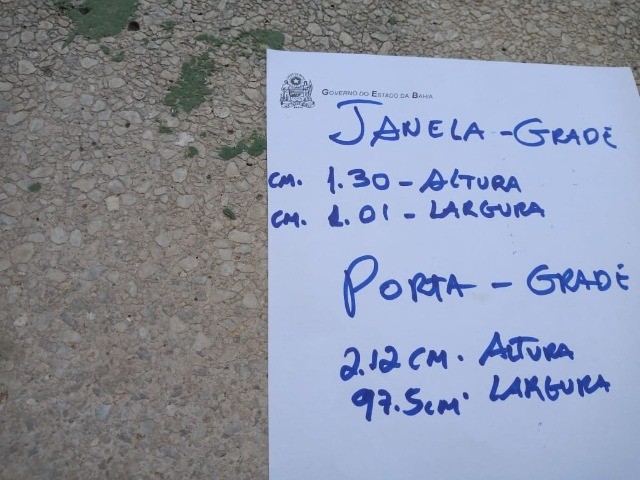 GOVERNO DO ESTADO DA BAHIA
JANELA - GRADE
CM. 1.30 - ALTURA
CM. 1.01 - LARGURA
PORTA - GRADE
2.12 CM. ALTURA
97.5 cm. LARGURA